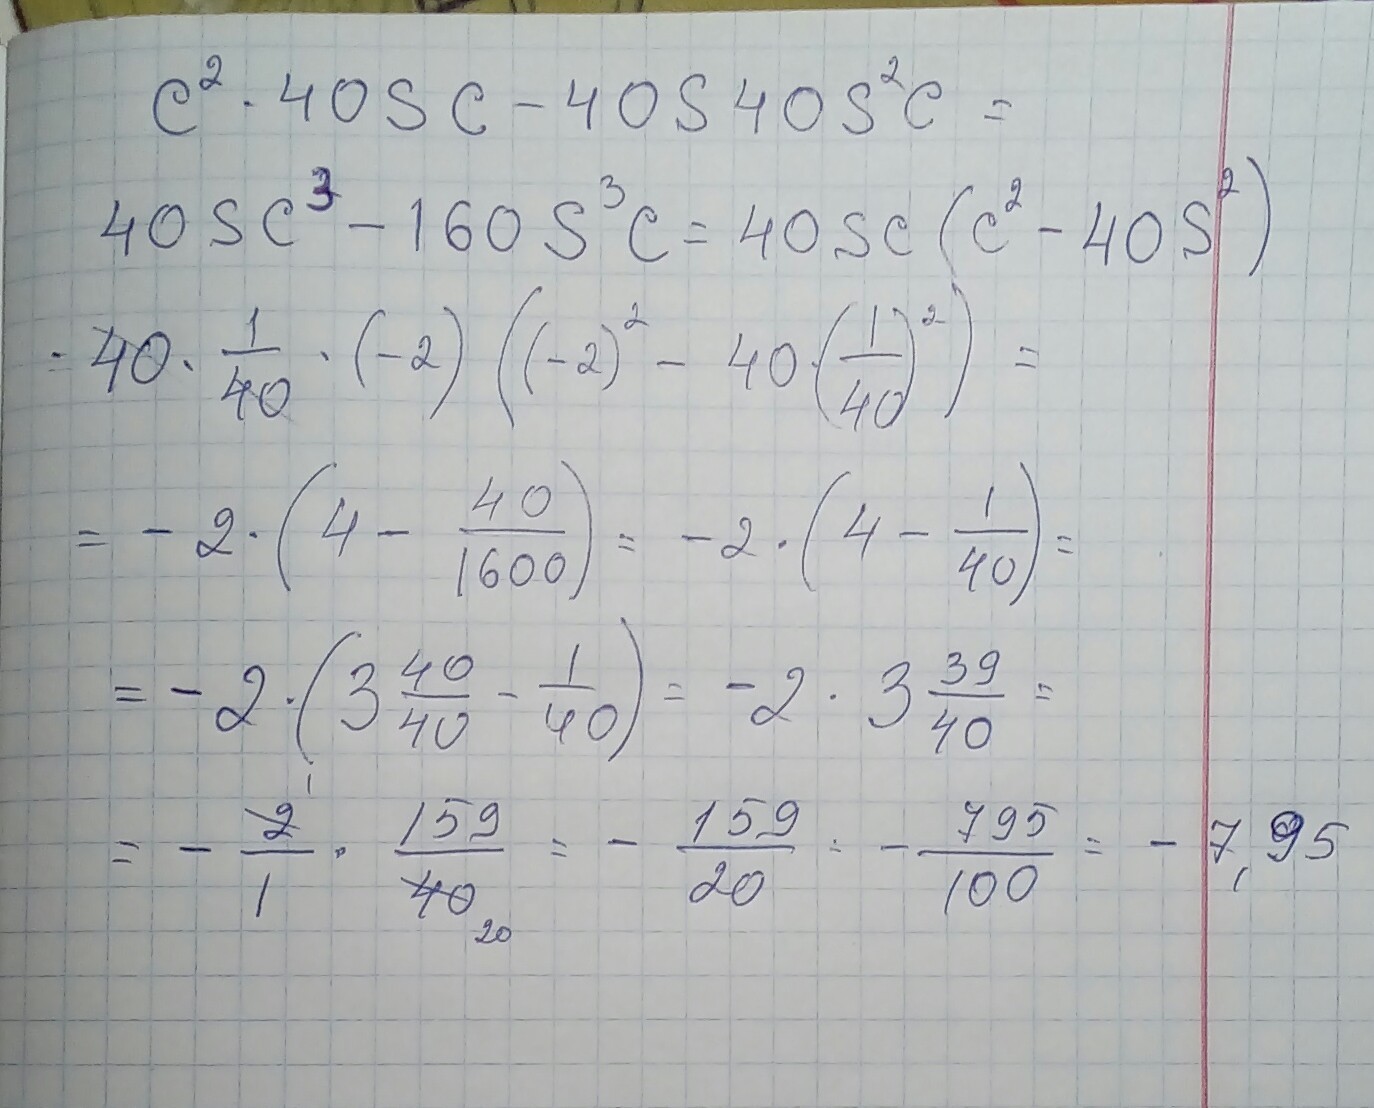 c² · 40sc - 40s40s²c =
40sc³ - 160s³c = 40sc(c² - 40s²)
= 40 · 1/40 · (-2) ((-2)² - 40 · (1/40)²) =
= -2 · (4 - 40/1600) = -2 · (4 - 1/40) =
= -2 · (3 40/40 - 1/40) = -2 · 3 39/40 =
= - 2/1 · 159/40 = - 159/20 = - 795/100 = - 7,95
1
20